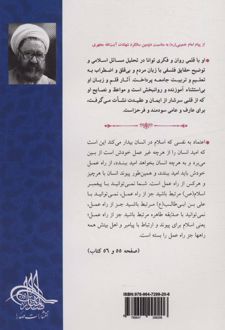 از پیام امام خمینی(ره) به مناسبت دومین سالگرد شهادت آیت‌الله مطهری
او با قلمی روان و فکری توانا در تحلیل مسائل اسلامی و
توضیح حقایق فلسفی با زبان مردم و بی‌قلق و اضطراب به
تعلیم و تربیت جامعه پرداخت. آثار قلم و زبان او
بی‌استثناء آموزنده و روانبخش است و مواعظ و نصایح او
که از قلبی سرشار از ایمان و عقیدت نشأت می‌گرفت،
برای عارف و عامی سودمند و فرحزاست.
اعتماد به نفسی که اسلام در انسان بیدار می‌کند این است
که امید انسان را از هرچه غیر عمل خودش است از بین
می‌برد و به هرچه انسان بخواهد امید ببندد، از راه عمل
خودش باید امید ببندد، و همین‌طور پیوند انسان با هرچیز
و هرکس از راه عمل است. شما نمی‌توانید با پیغمبر
اسلام(ص) مرتبط باشید جز از راه عمل، نمی‌توانید با
علی بن ابی‌طالب(ع) مرتبط باشید جز از راه عمل،
نمی‌توانید با صدیقه طاهره مرتبط باشید جز از راه عمل؛
یعنی اسلام برای پیوند و ارتباط با پیامبر و اهل بیتش همه
راهها جز راه عمل را بسته است.
(صفحه ۵۵ و ۵۶ کتاب)